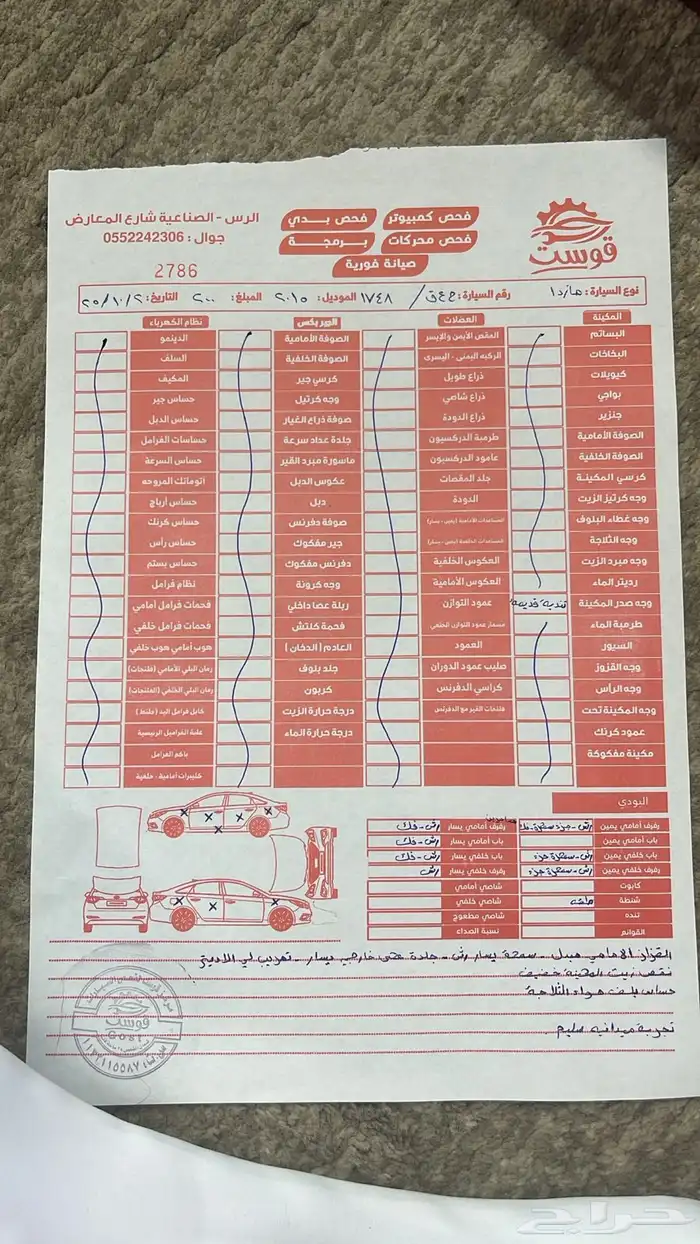 قوست
فحص كمبيوتر
فحص بدي
فحص محركات
برمجة
صيانة فورية
الرس - الصناعية شارع المعارض
جوال : 0552242306
2786
نوع السيارة : مازدا
رقم السيارة :
١٧٤٨
الموديل: ٢٠١٥
المبلغ: ٢٠٠
التاريخ: ٢٥/١٠/٢
المكينة
البساتم
البخاخات
كيويلات
بواجي
جنزير
الصوفة الأمامية
الصوفة الخلفية
كرسي المكينة
وجه كرتيز الزيت
وجه غطاء البلوف
وجه الثلاجة
وجه مبرد الزيت
رديتر الماء
وجه صدر المكينة
تندية قديمة
طرمبة الماء
السيور
وجه القزوز
وجه الرأس
وجه المكينة تحت
عمود كرنك
مكينة مفكوكة
العضلات
المقص الأيمن والأيسر
الركبه اليمنى - اليسرى
ذراع طويل
ذراع شاصي
ذراع الدودة
طرمبة الدركسيون
عامود الدركسيون
جلد المقصات
الدودة
المساعدات الأمامية (يمين - يسار)
المساعدات الخلفية (يمين - يسار)
العكوس الخلفية
العكوس الأمامية
عمود التوازن
مسمار عمود التوازن الخلفي
العمود
صليب عمود الدوران
كراسي الدفرنس
فلنجات القير مع الدفرنس
الجير بكس
الصوفة الأمامية
الصوفة الخلفية
كرسي جير
وجه كرتيل
صوفة ذراع الغيار
جلدة عداد سرعة
ماسورة مبرد القير
عكوس الدبل
دبل
صوفة دفرنس
جير مفكوك
دفرنس مفكوك
وجه كرونة
ربلة عصا داخلي
فحمة كلتش
العادم (الدخان)
جلد بلوف
كربون
درجة حرارة الزيت
درجة حرارة الماء
نظام الكهرباء
الدينمو
السلف
المكيف
حساس جير
حساس الدبل
حساسات الفرامل
حساس السرعة
اتوماتك المروحه
حساس أرباح
حساس كرنك
حساس رأس
حساس بستم
نظام فرامل
فحمات فرامل أمامي
فحمات فرامل خلفي
هوب أمامي هوب خلفي
رمان البلي الأمامي (فلنجات)
رمان البلي الخلفي (الفلنجات)
كابل فرامل اليد (جلنط)
علبة الفرامل الرئيسية
باكم الفرامل
كليبرات أمامية - خلفية
البودي
رفرف أمامي يمين
رفرف أمامي يسار رش - فك
باب أمامي يمين
باب أمامي يسار رش - فك
باب خلفي يمين رش - سمكرة جزء
باب خلفي يسار رش - فك
رفرف خلفي يمين رش - سمكرة جزء
رفرف خلفي يسار رش
كابوت
شاصي أمامي
شنطة
شاصي خلفي
تنده
شاصي مطعوج
القوائم
نسبة الصداء
القزاز الامامي مبدل - سمحة يسار رش - جلدة عكس خارجي يسار - تهريب لي الرديتر
نقص زيت المكينة خفيف
حساس بلف هواء الثلاجة
تجربة ميدانيه سليم
قوست
Gost
حراج